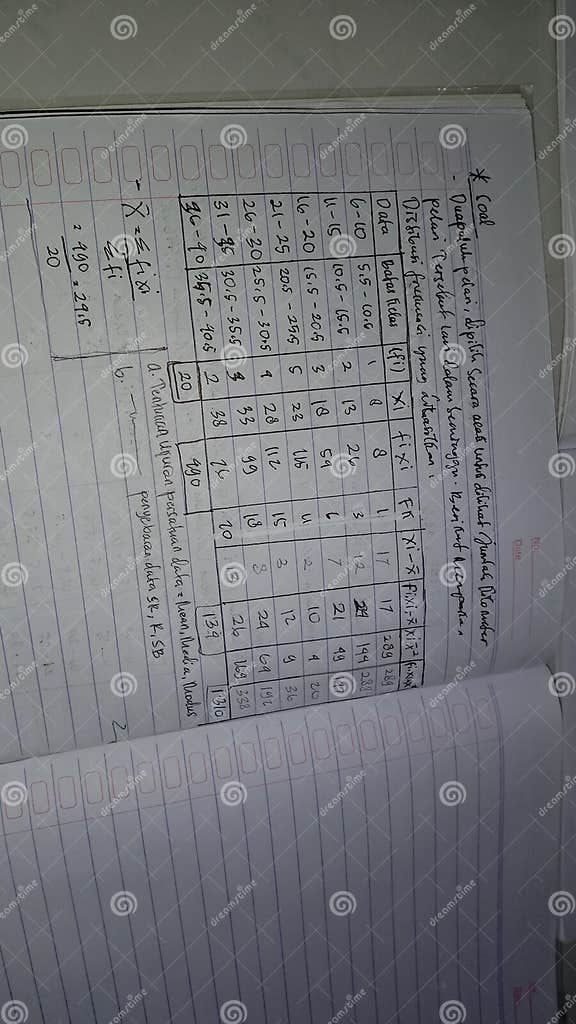 * Soal
- Duapuluh pelari, dipilih secara acak untuk dilihat jumlah kilometer
pelari tersebut lari dalam seminggu. Berikut merupakan
Distribusi frekuensi yang dihasilkan :
Data Batas Kelas (fi) xi fi xi Fki xi-x̄
6-10 5.5-10.5 1 8 8 1 17 17 289 289
11-15 10.5-15.5 2 13 26 3 12 24 144 288
16-20 15.5-20.5 3 18 54 6 7 21 49
21-25 20.5-25.5 5 23 115 11 2 10 4 20
26-30 25.5-30.5 4 28 112 15 3 12 9 36
31-35 30.5-35.5 3 33 99 18 8 24 64 192
36-40 35.5-40.5 2 38 76 20 13 26 169 338
20 490 134 1310
a. Tentukan ukuran pemusatan data = Mean, Media, Modus
b. penyebaran data SR, R, SB
- X̄ = Σ fi xi
Σ fi
= 490 = 24.5
20
No.
Date
dreamstime